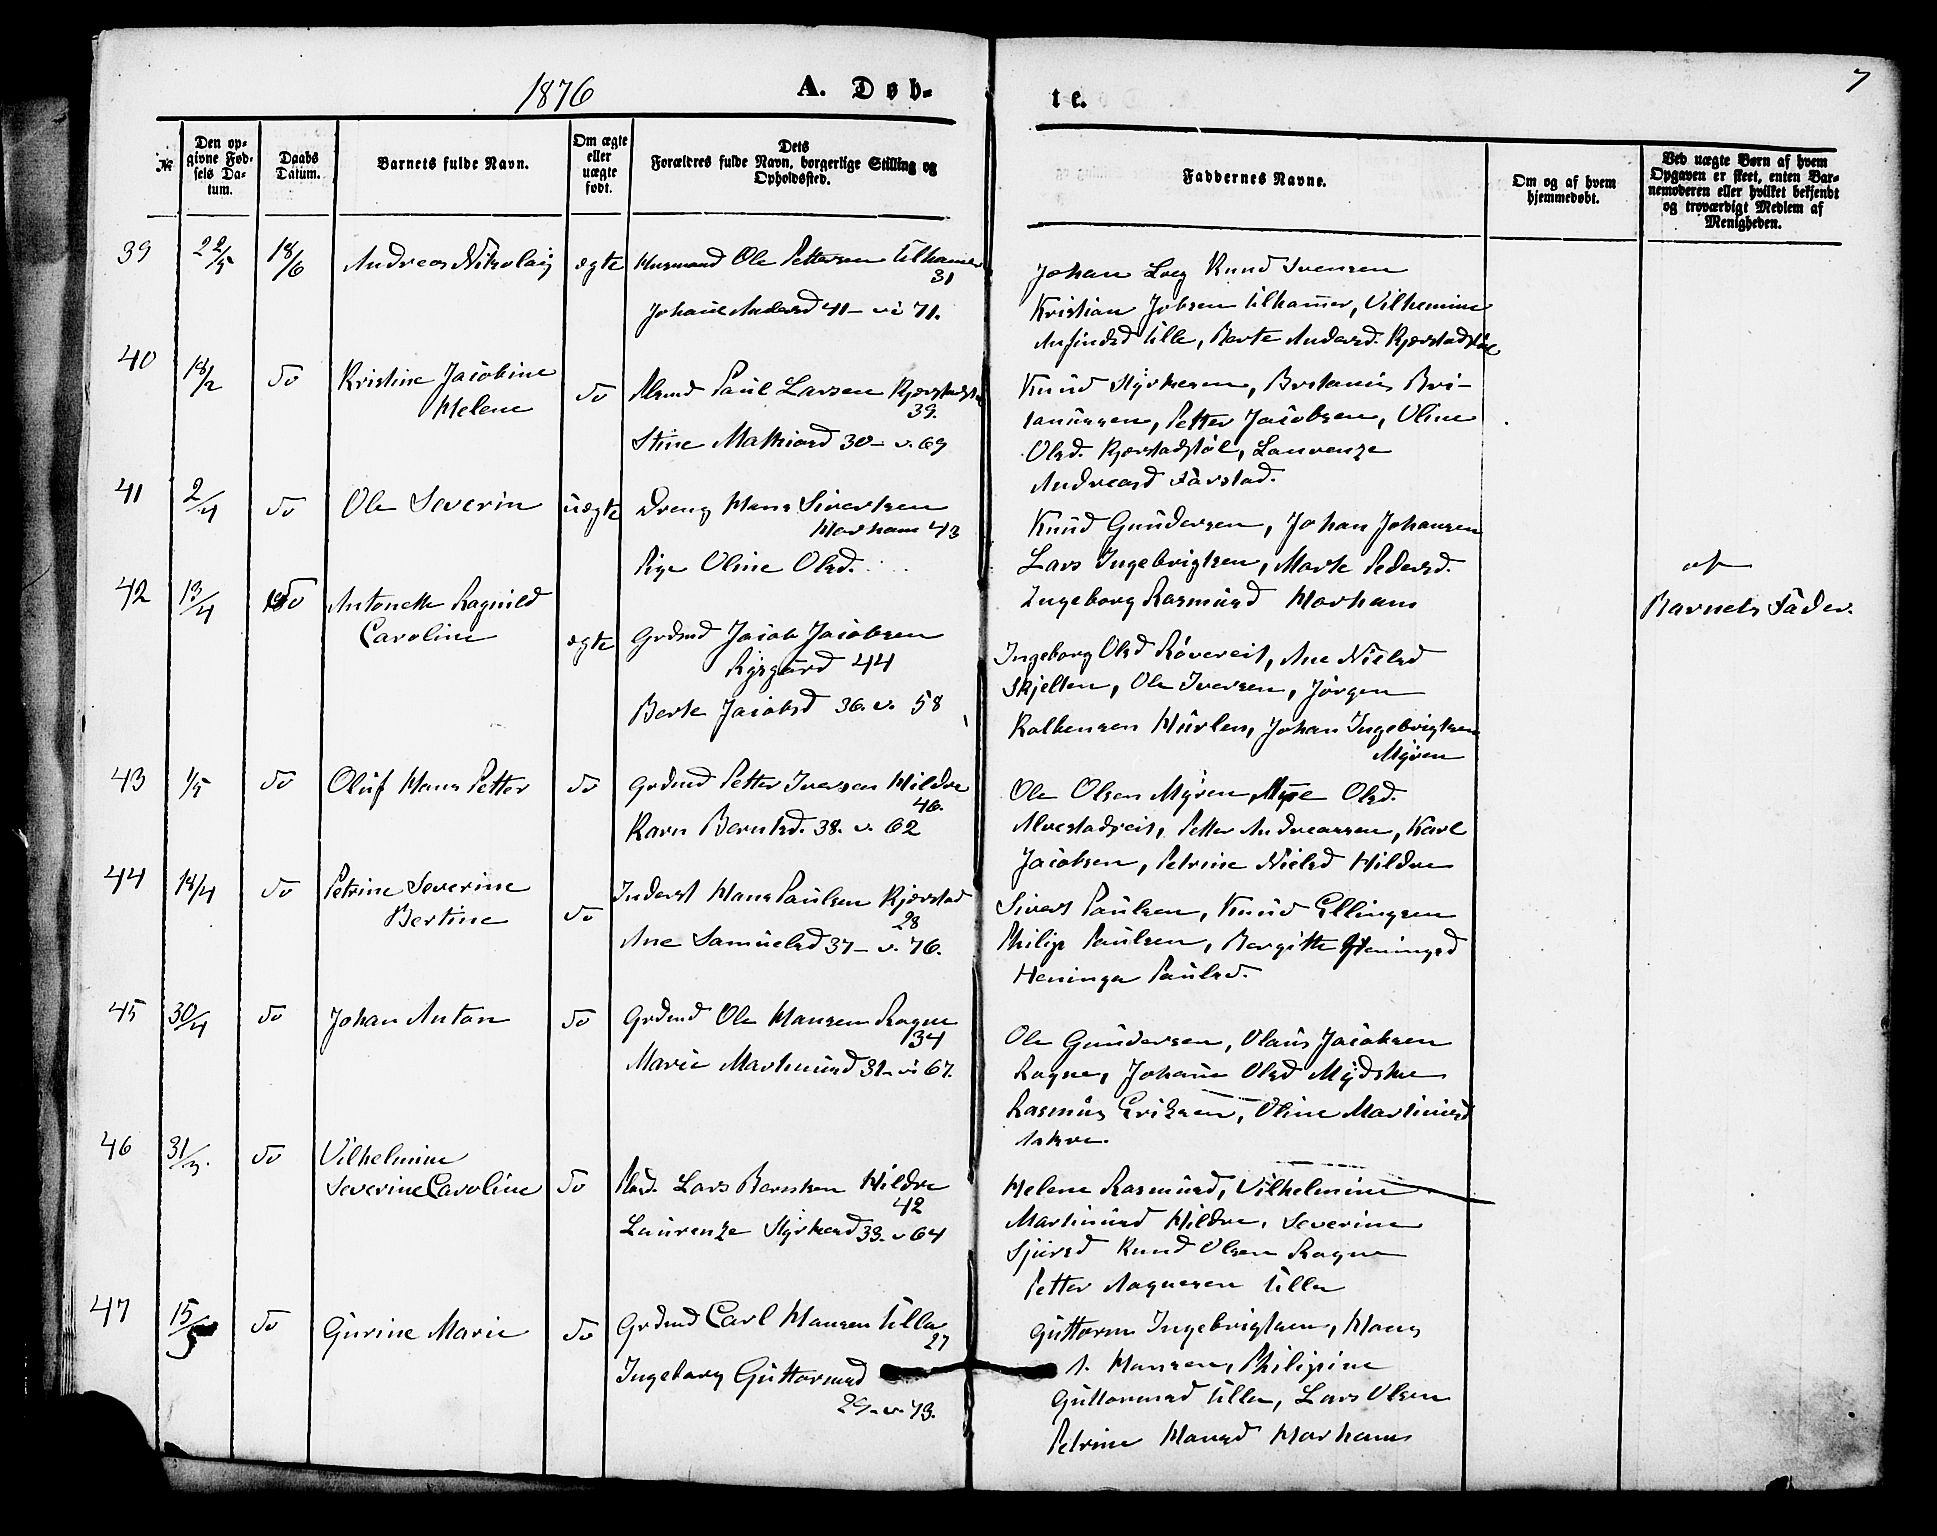 1876
A. Døb-
te.
7
№
Den op-
givne Fød-
sels Da-
tum.
Daabs
Datum.
Barnets fulde Navn.
Om ægte
eller
uægte
født.
Dets
Forældres fulde Navn, borgerlige Stilling og
Opholdssted.
Faddernes Navne.
Om og af hvem
hjemmedøbt.
Ved uægte Børn af hvem
Opgaven er skeet, enten Bar-
nemoderen eller hvilket bekjendt
og troværdigt Medlem af
Menigheden.
39 22/5 18/6 Andreas Nikolaij ægte Husmand Ole Pettersen Ulhamer
31
Johane Andersd 41 - v. 71.
Johan Knud Svensen
Kristian Jobsen Ulhamer, Vilhemine
Ulla, Berte Andersd. Kjærstadstøl
40 18/2 do Kristine Jacobine
Helene
do Paul Larsen
39.
Stine Mathiasd 30 - v. 69
Knud Styrkersen,
Petter Jacobsen, Oline
Olsd. Kjærstadstøl, Laurenze
Andreasd Farstad.
41 2/4 do Ole Severin uægte Dreng Hans Sivertsen
Harham 43
Pige Oline Olsd.
Knud Gundersen, Johan Johansen
Lars Ingebrigtsen, Marte Pedersd.
Ingeborg Rasmusd Harham
af
Barnets Fader.
42 13/4 do Antonette Ragnild
Caroline
ægte Grdmd Jacob Jacobsen
Rysgård 44
Berte Jacobsd 36. v. 58
Ingeborg Olsd Røvereit, Ane Nielsd
Skjelten, Ole Iversen, Jørgen
Hurlen, Johan Ingebrigtsen
Myren
43 1/5 do Oluf Hans Petter do Grdmd Petter Iversen Hildre
46.
Karn Berntsd. 38. v. 62
Ole Olsen Myren, Olsd.
Alvestadreit, Petter Andreassen, Karl
Jacobsen, Petrine Nielsd Hildre
44 18/4 do Petrine Severine
Bertine
do Inderst Hans Paulsen Kjærstad
28
Ane Samuelsd 37 - v. 76.
Sivert Paulsen, Knud Ellingsen
Philip Paulsen, Bergitte Heningsd
Heninga Paulsd.
45 30/4 do Johan Anton do Grdmd Ole Hansen Rogne
34
Marie Martinusd 31 - v. 67.
Ole Gundersen, Olaus Jacobsen
Rogne, Johane Olsd
Rasmus Eriksen, Oline Martinusd
46 31/3. do Vilhelmine
Severine Caroline do Lars Berntsen Hildre
42
Laurenze Styrkersd 33. v. 64
Helene Rasmusd, Vilhelmine
Martinusd Hildre, Severine
Sjursd Knud Olsen Rogne
Petter Aagnesen Ulla
47 15/5 do Gurine Marie do Grdmd Carl Hansen Ulla
27
Ingeborg Guttormsd
29 - v. 73.
Guttorm Ingebrigtsen, Hans
A. Hansen, Philipine
Guttormsd Ulla, Lars Olsen
Petrine Hansd Harham